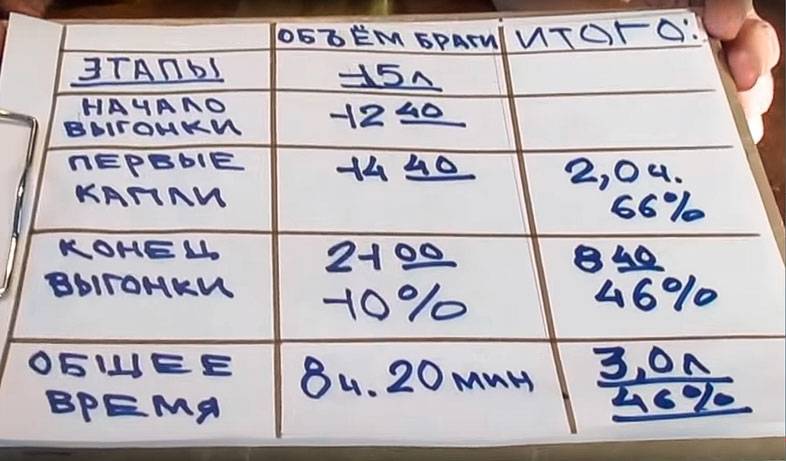 ОБЪЁМ БРАГИ ИТОГО:
ЭТАПЫ 15л
НАЧАЛО
ВЫГОНКИ 12 40
ПЕРВЫЕ
КАПЛИ 14 40 2,0ч.
66%
КОНЕЦ
ВЫГОНКИ 21 00
10% 8 40
46%
ОБЩЕЕ
ВРЕМЯ 8ч. 20мин 3,0л
46%